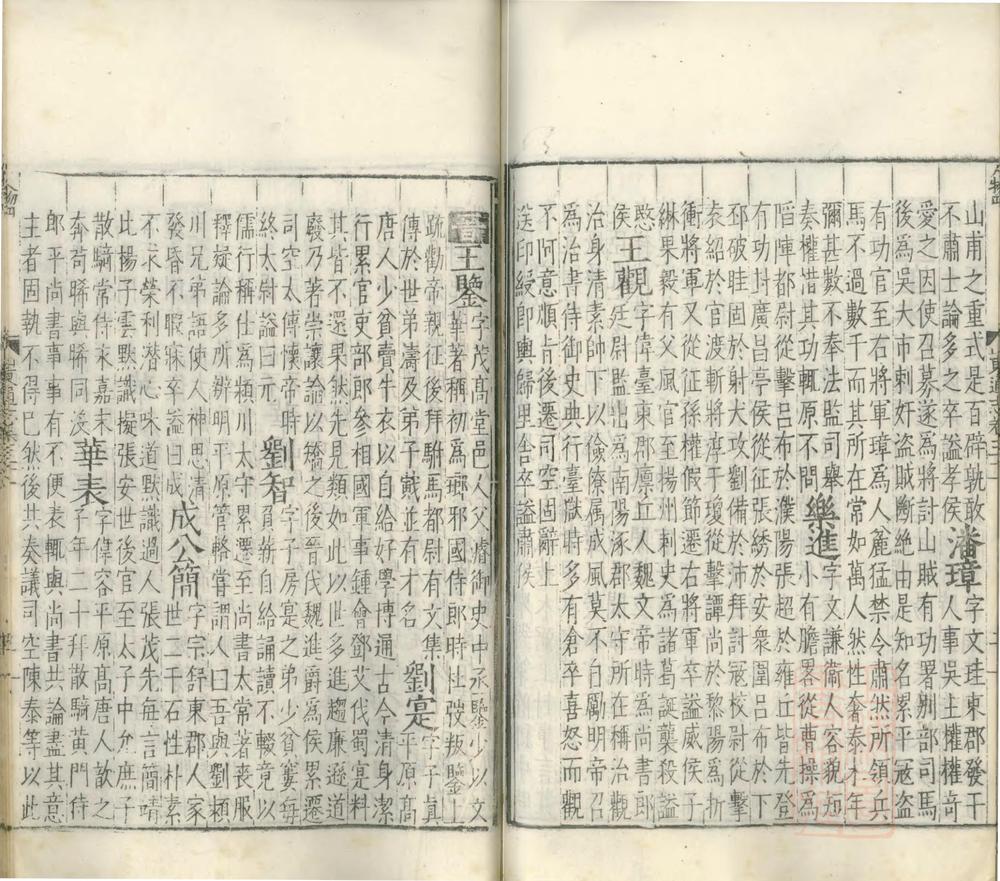 山甫之重式是百辟孰敢潘璋字文珪東郡發干
不肅士論多之卒謚孝侯人事吳主權權奇
愛之因使召募遂為將討山賊有功署別部司馬
後為吳大市刺奸盜賊斷絶由是知名累平冦盗
有功官至右將軍璋為人麄猛禁令肅然所領兵
馬不過數千而其所在常如萬人然性奢泰末年
彌甚數不奉法監司舉樂進字文謙衛人容貌短
奏權惜其功輒原不問小有膽畧從曹操為
陷陣都尉從擊呂布於濮陽張超於雍丘皆先登
有功封廣昌亭侯從征張綉於安衆圍呂布於下
邳破眭固於射犬攻劉備於沛拜討冦校尉從擊
袁紹於官渡斬淳于瓊從擊譚尚於黎陽為折
衝將軍又從征孫權假節遷右將軍卒謚威侯子
綝果毅有父風官至揚州刺史為諸葛誕襲殺謚
愍侯王觀字偉臺東郡廪丘人魏文帝時為尚書郎
侯廷尉監出為南陽涿郡太守所在稱治觀
治身清素帥下以儉僚属成風莫不自勵明帝召
為治書侍御史典行臺獄時多有倉卒喜怒而觀
不阿意順㫖後遷司空固辭上
送印綬即輿歸里舍卒謚肅侯
晋王鑒字茂髙堂邑人父濬御史中丞鑒少以文
華著稱初為瑯邪國侍郎時杜弢叛鑒上
疏勸帝親征後拜駙馬都尉有文集劉寔字子真
傳於世弟濤及弟子戴並有才名平原髙
唐人少貧賣牛衣以自給好學博通古今清身潔
行累官吏部郎參相國軍事鍾會鄧艾伐蜀寔料
其皆不還果然先見類如此以世多進趨廉遜道
廢乃著崇讓論以矯之後晉代魏進爵為侯累遷
司空太傅懷帝時劉智字子房寔之弟少貧窶每
終太尉謚曰元負薪自給誦讀不輟竟以
儒行稱仕為潁川太守累遷至尚書太常著喪服
釋疑論多所辨明平原管輅嘗謂人曰吾與劉潁
川兄弟語使人神思清成公簡字宗舒東郡人家
發昏不暇寐卒謚曰成世二千石性朴素
不求榮利潜心味道默識過人張茂先每言簡靖
此楊子雲默識擬張安世後官至太子中允庶子
散騎常侍末嘉末華表字偉容平原髙唐人歆之
奔苟晞與晞同没子年二十拜散騎黄門侍
郎平尚書事事有不便表輒與尚書共論盡其意
主者固執不得已然後共奏議司空陳泰等以此